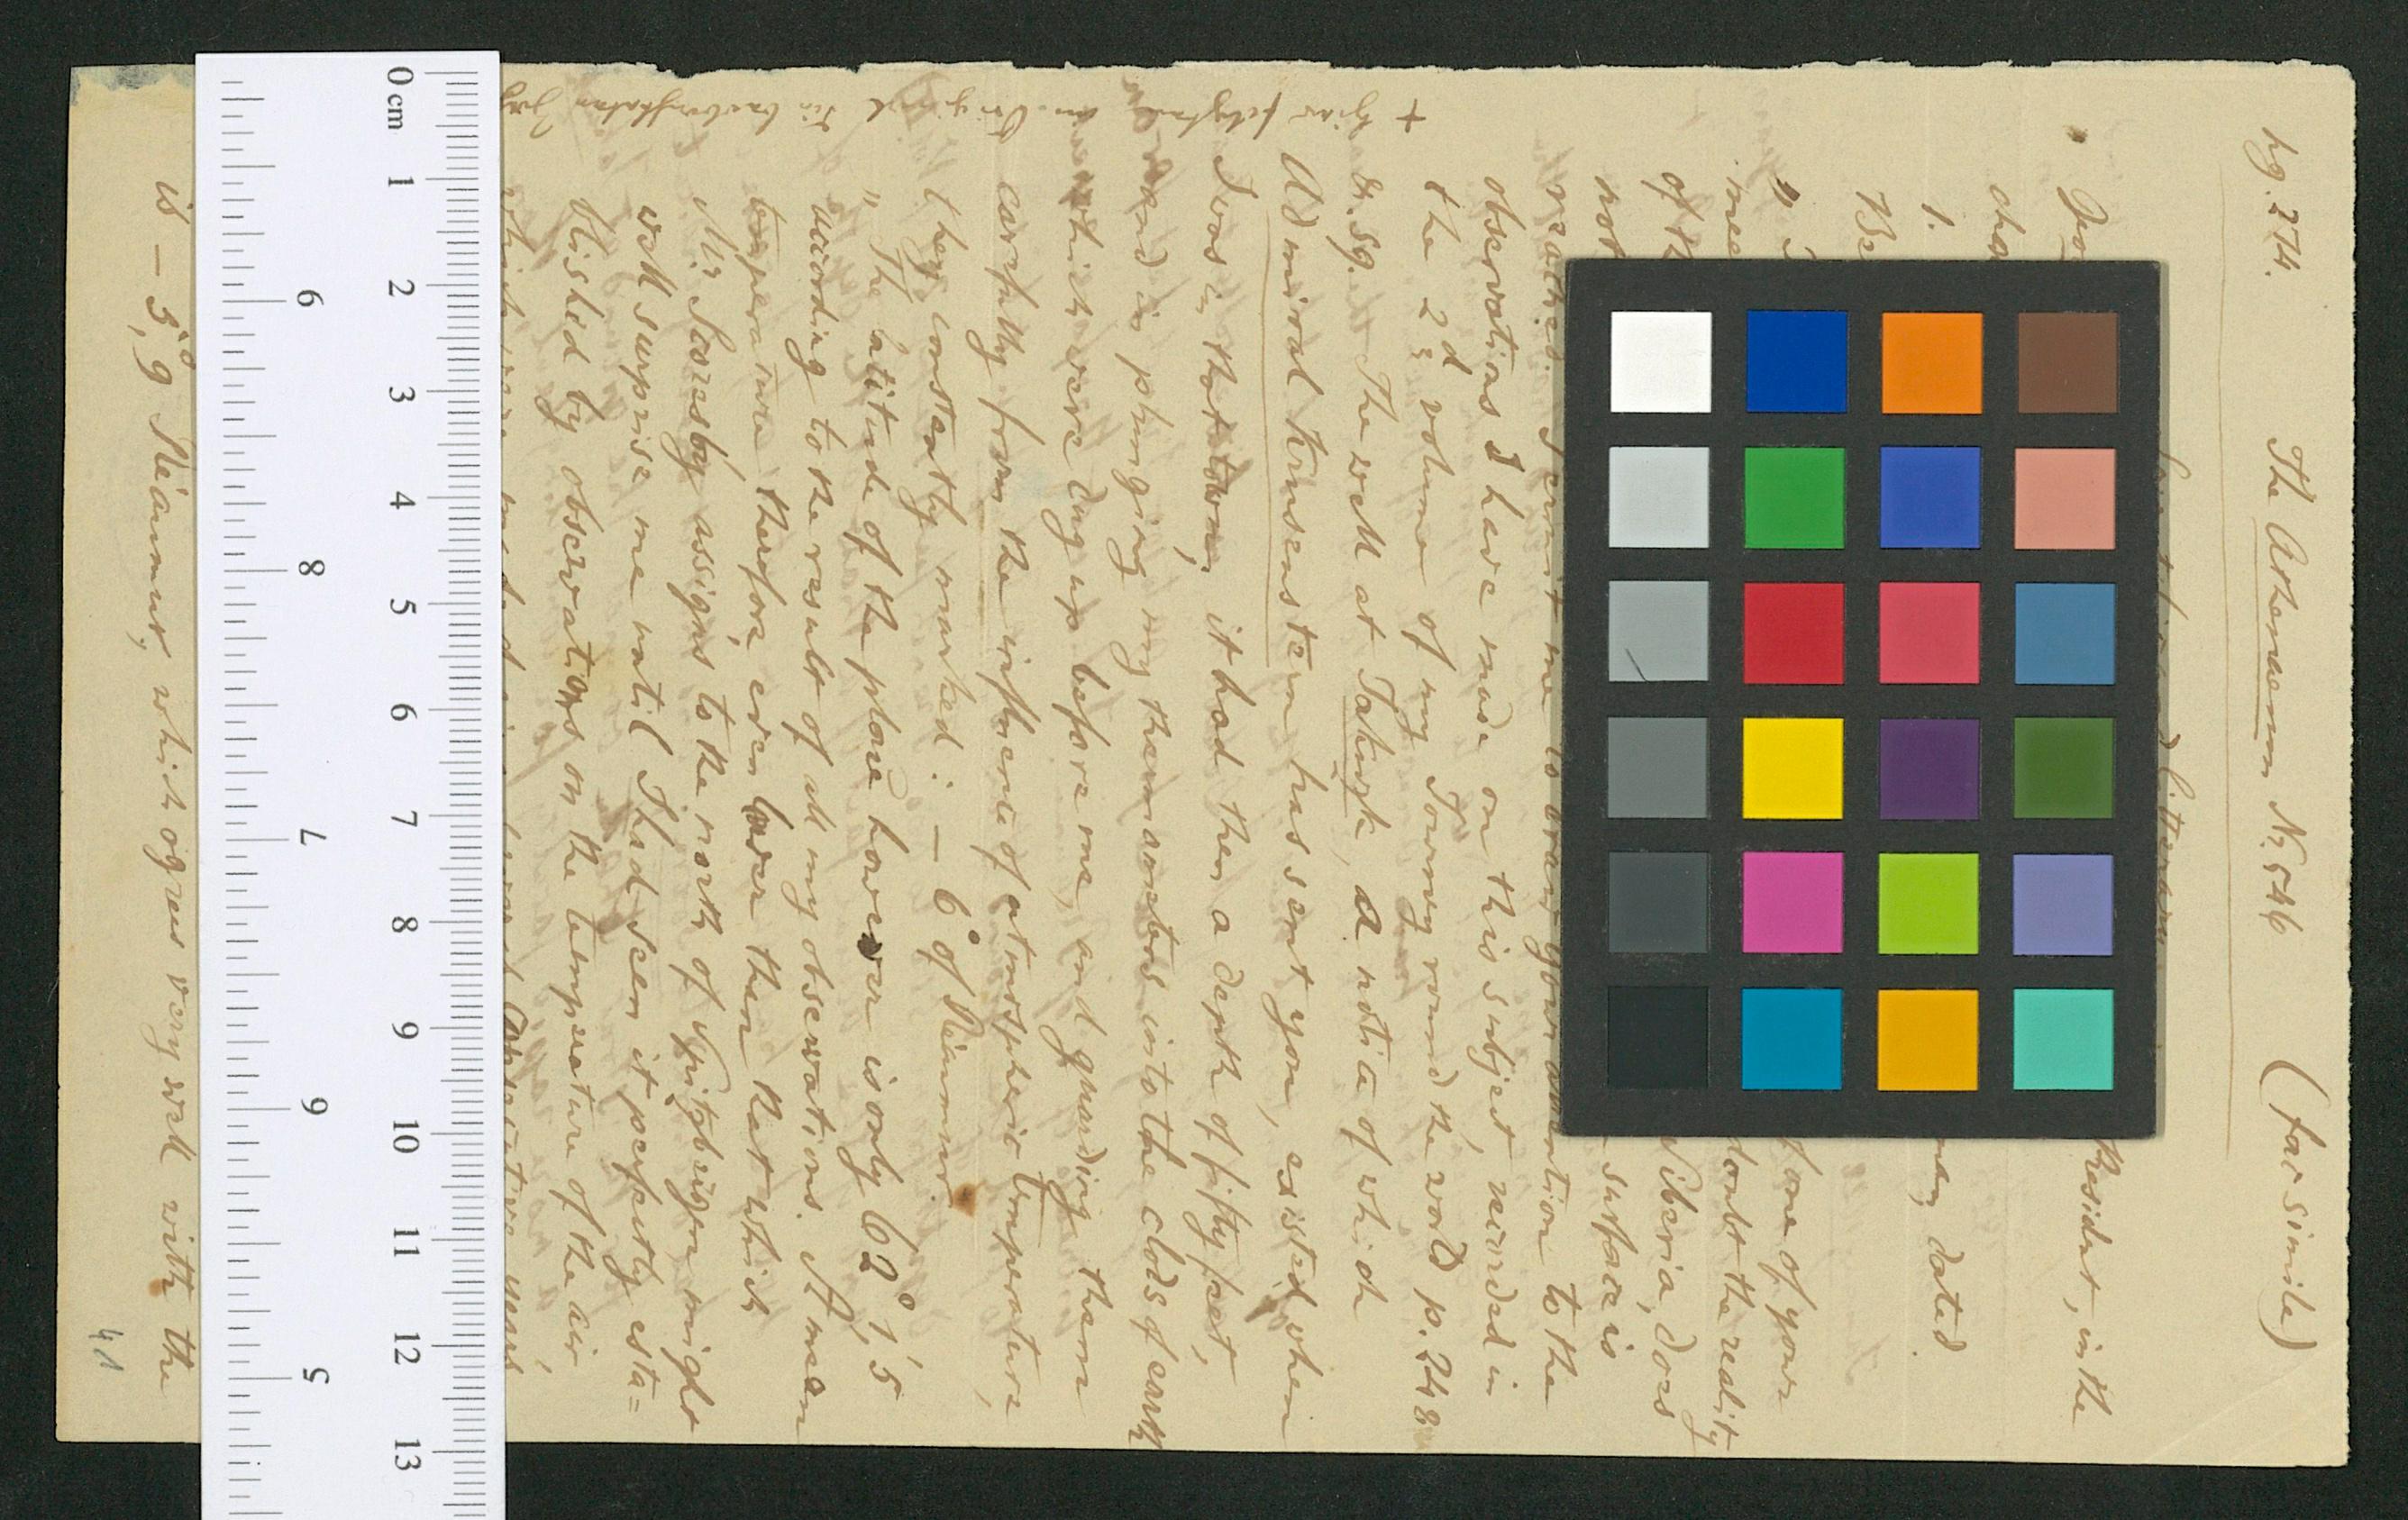 pg. 274. The Athenaeum Nr. 546 (fac simile)
litteram
President, in the
cha
1. men, dated
Be
of one of your
mee doubt the reality
of th Siberia, does
not surface is
reaches. Permit me to draw your attention to the
observations I have made on this subject, recorded in
the 2d volume of my Journey round the world p. 248
& sq. The well at Jakuzk, a notice of which
Admiral Krusenstern has sent you, existed when
I was in that town, it had then a depth of fifty feet,
and in plunging my thermometers into the clods of earth
which were dug up before me, and guarding them
carefully from the influence of atmospheric temperature,
they constantly marked: – 6° of Réaumur.
" The latitude of the place however is only 62° 1,'5
according to the result of all my observations. A mean
temperature therefore, even lower then that which
Mr. Scoresby assigns to the north of Spitzbergen might
well surprise me until I had seen it perfectly esta=
blished by observations on the temperature of the air
years,
is – 5,°9 Réaumur, which agrees very well with the
+
0 cm 1 2 3 4 5 6 7 8 9 10 11 12 13
6 8 7 9 5